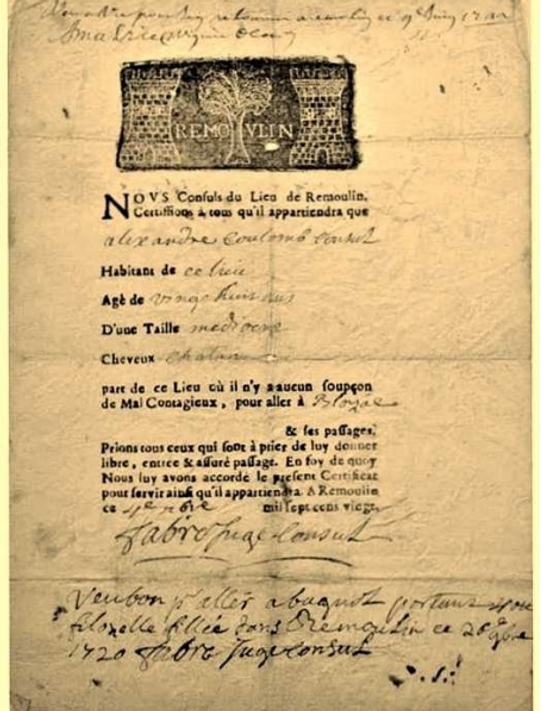 REMOVLIN
NOVS Consuls du Lieu de Remoulin,
Certifions à tous qu'il appartiendra que
alexandre Coulomb Consul
Habitant de ce lieu
Agé de vingt huit ans
D'une Taille mediocre
Cheveux chatain
part de ce Lieu où il n'y a aucun soupçon
de Mal Contagieux, pour aller à
& ses passages.
Prions tous ceux qui sont à prier de luy donner
libre, entrée & assuré passage. En foy de quoy
Nous luy avons accordé le present Certificat
pour servir ainsi qu'il appartiendra. A Remoulin
ce 4e mil sept cens vingt,
fabre Juge Consul
Veu bon p^r aller a bagnol portant
filozelle fillée dans Remoulin ce 26
1720 fabre Juge Consul